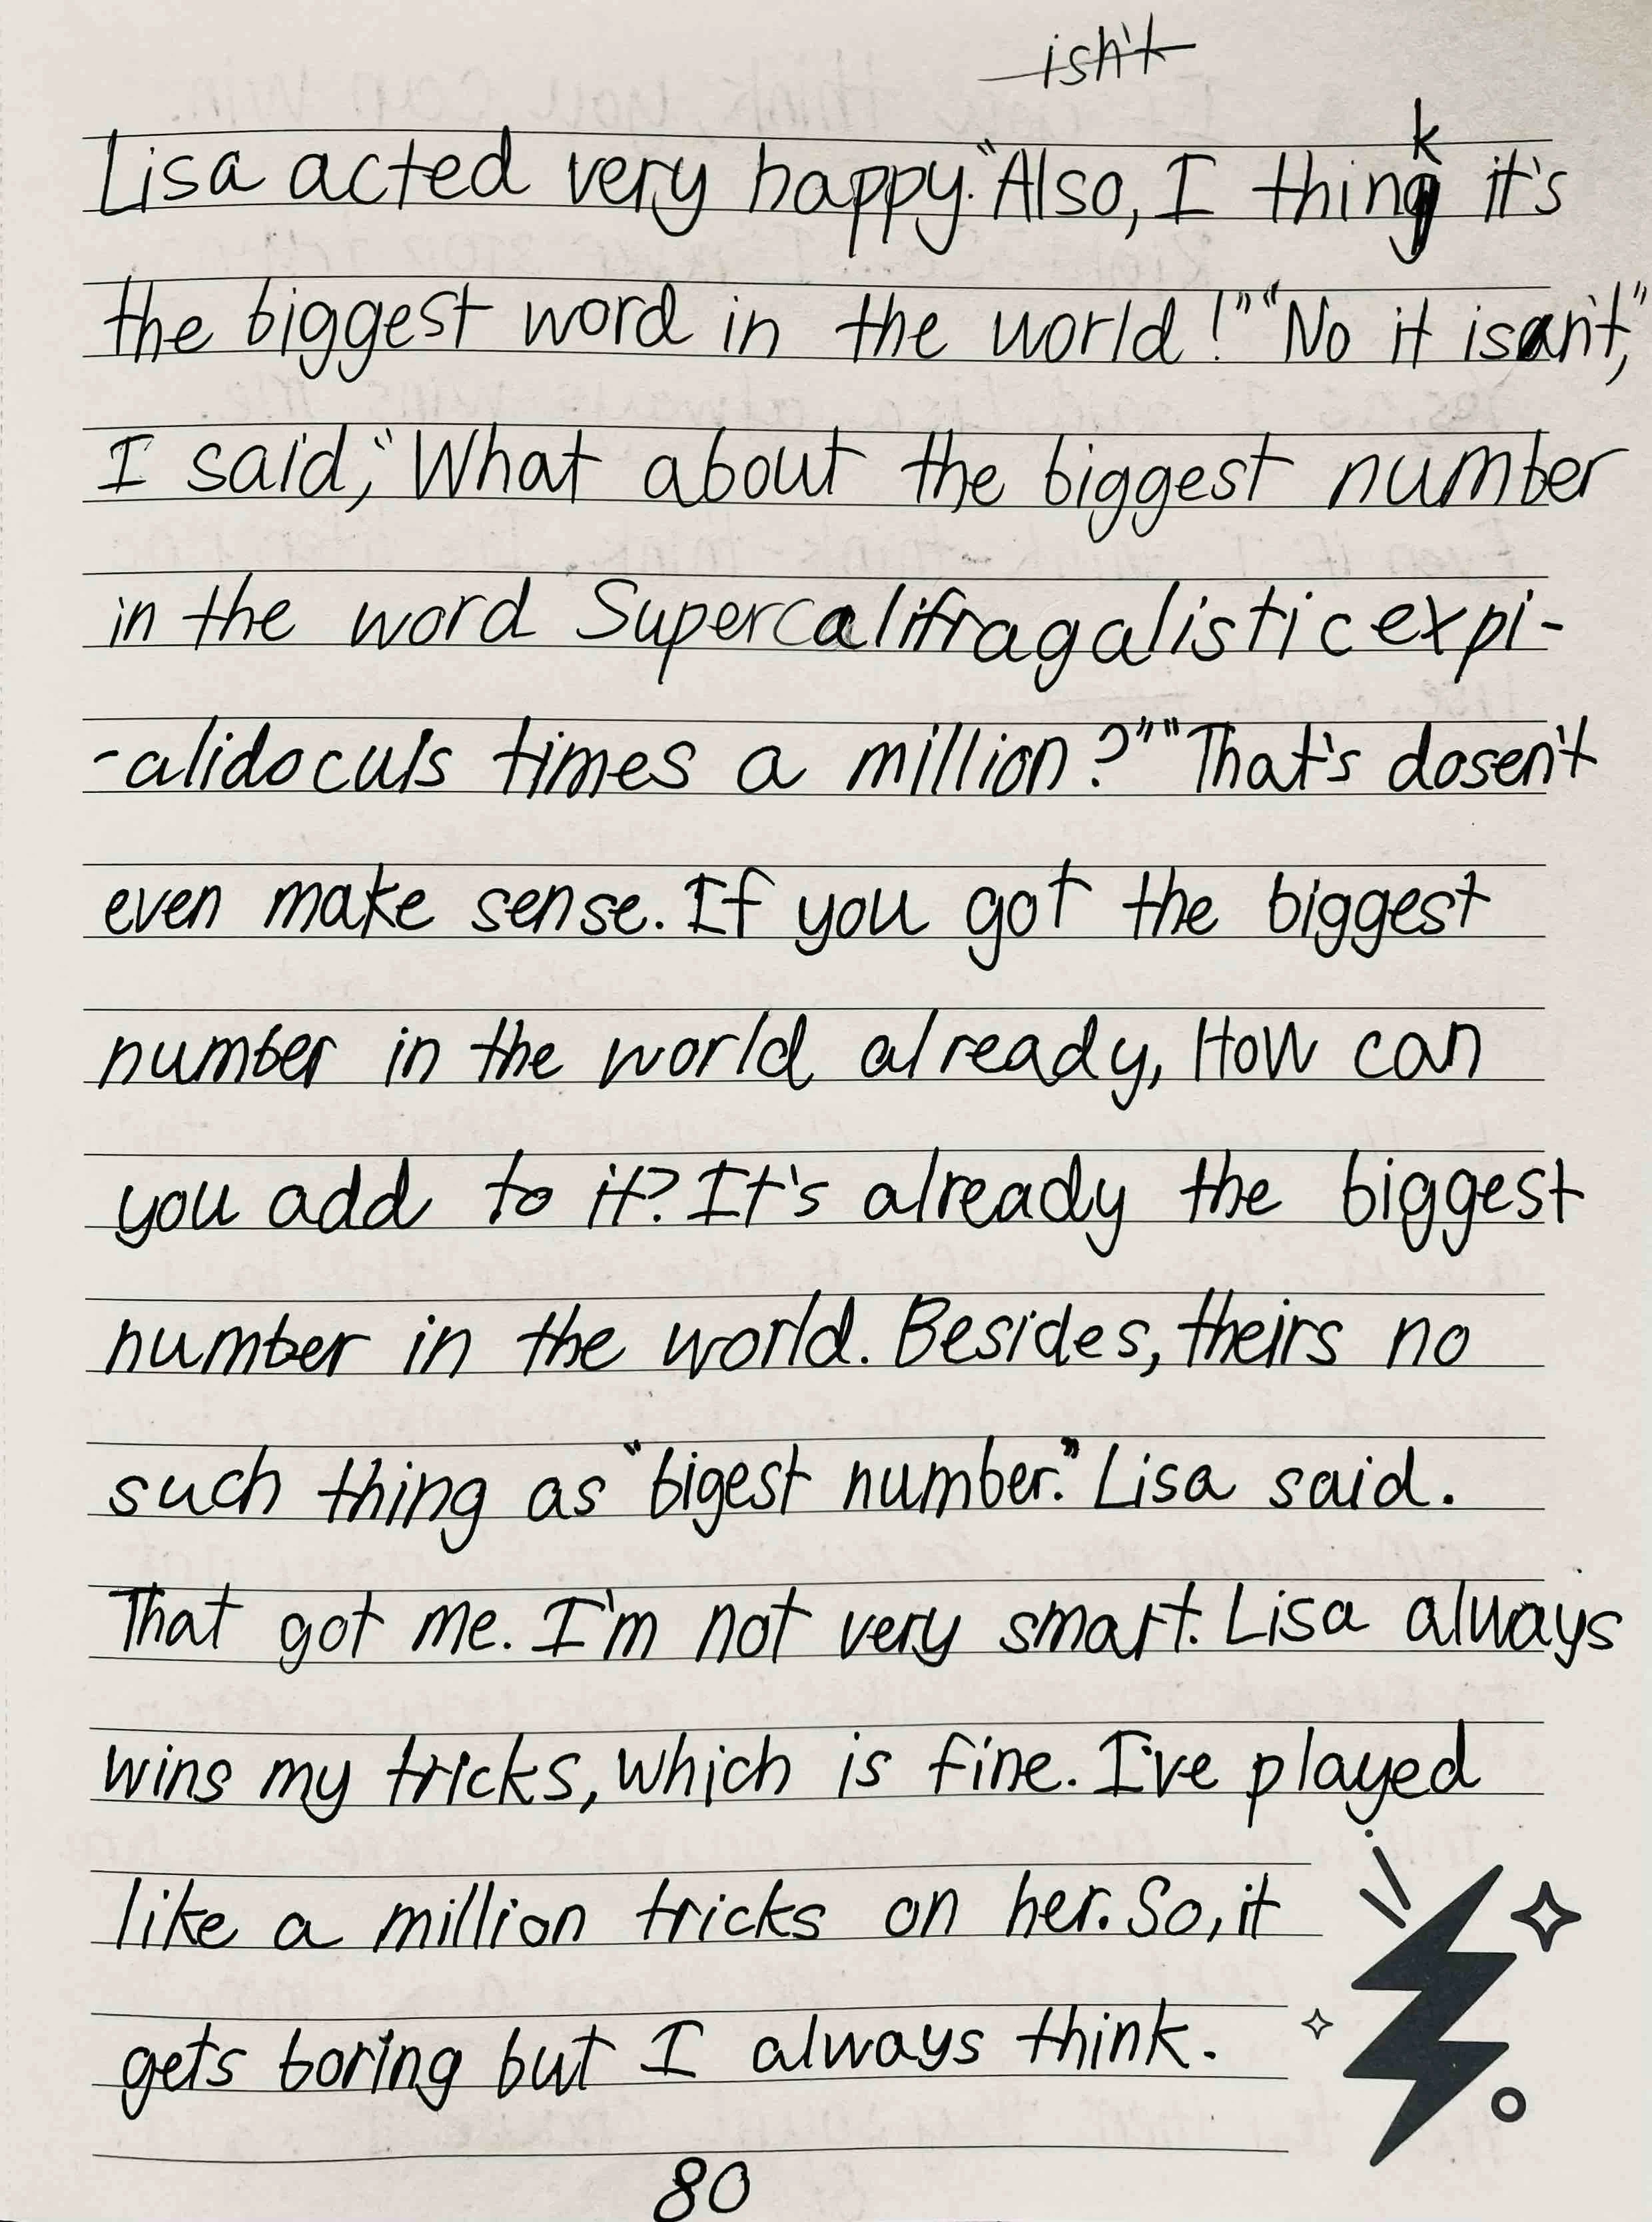 isn't
k
Lisa acted very happy. "Also, I thing it's
the biggest word in the world!" "No it isan't,"
I said, "What about the biggest number
in the word Supercalifragalisticexpi-
-alidoculs times a million?" "That's dosen't
even make sense. If you got the biggest
number in the world already, How can
you add to it? It's already the biggest
number in the world. Besides, theirs no
such thing as "bigest number." Lisa said.
That got me. I'm not very smart. Lisa always
wins my tricks, which is fine. I've played
like a million tricks on her. So, it
gets boring but I always think.
80